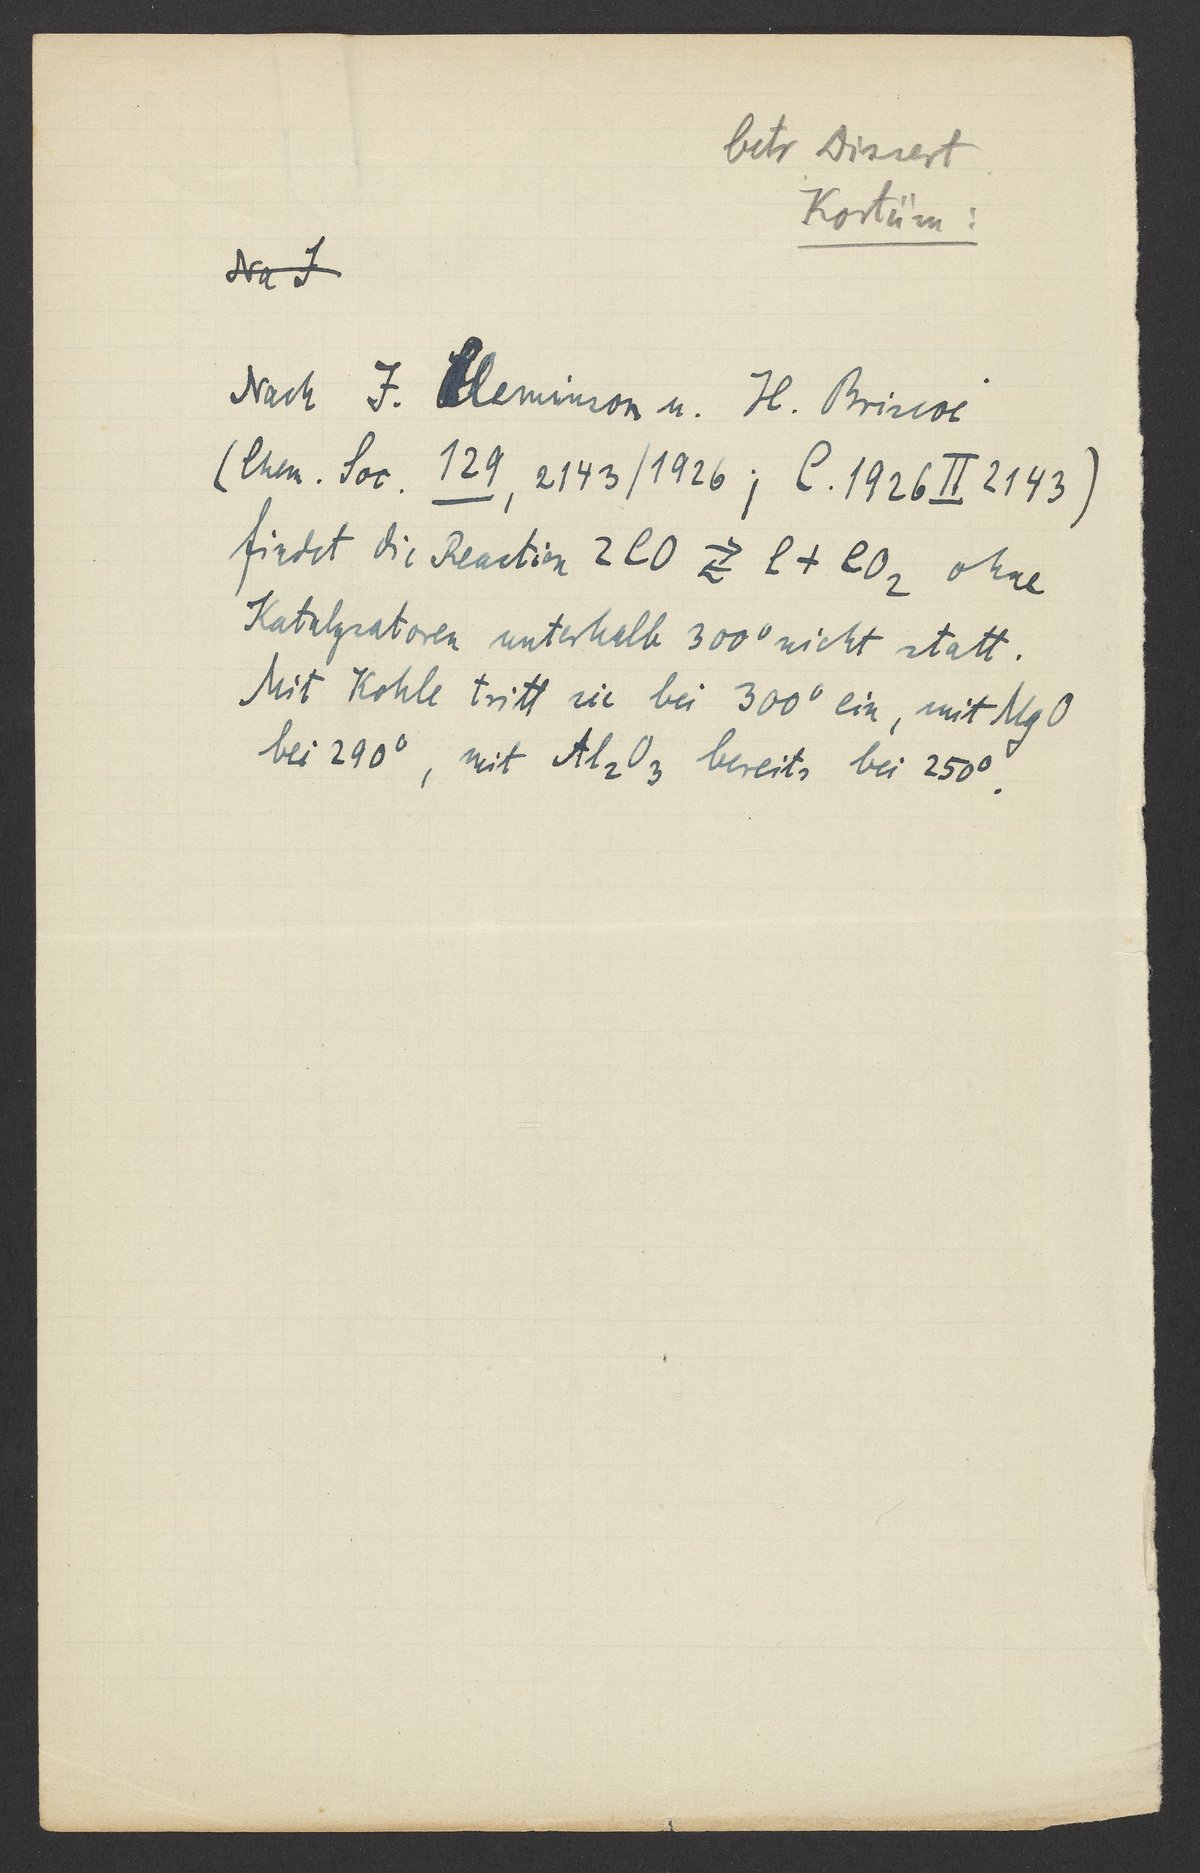 betr Dissert
Kortüm:
Na J
Nach J. Cleminson u. H. Briscoe
(Chem. Soc. 129, 2143/1926; C. 1926 II 2143)
findet die Reaction 2CO ⇄ C + CO₂ ohne
Katalysatoren unterhalb 300° nicht statt.
Mit Kohle tritt sie bei 300° ein, mit MgO
bei 290°, mit Al₂O₃ bereits bei 250°.